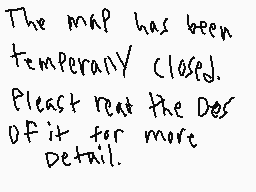 The map has been
temperany closed.
Pleast reat the Des
Of it for more
Detail.